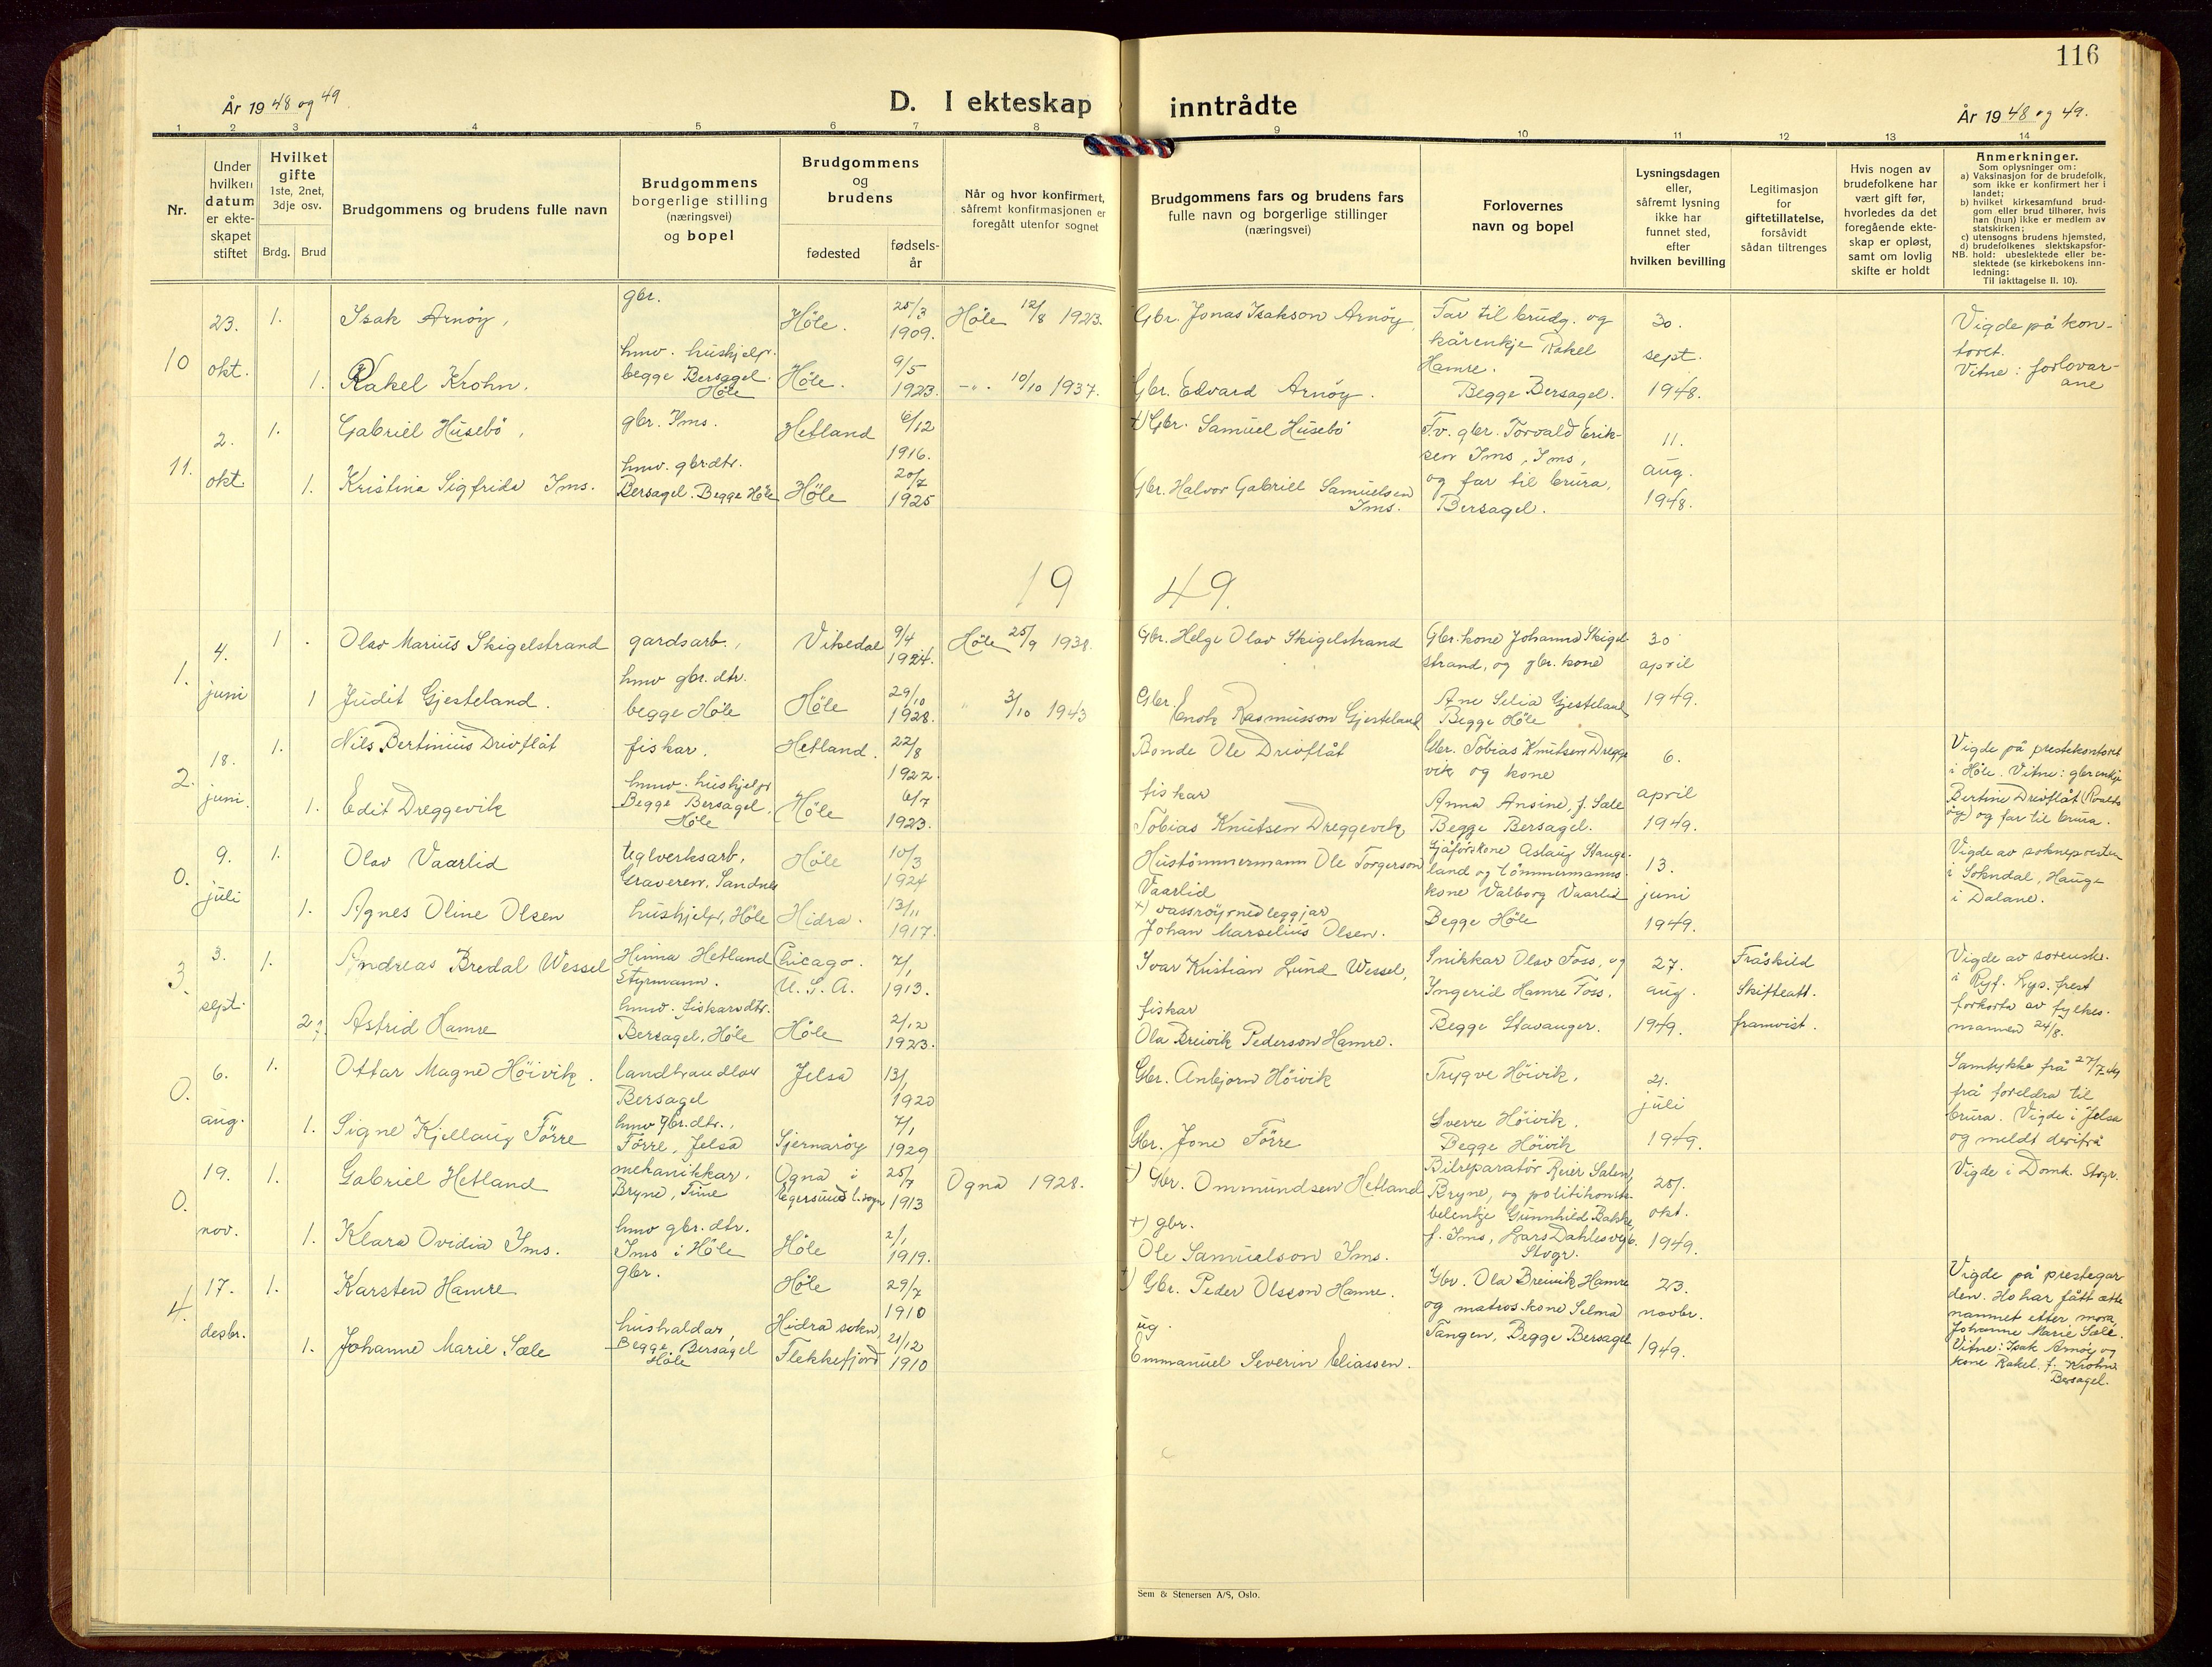 116
År 1948 og 49
D. I ekteskap inntrådte
År 1948 og 49.
1 2 3 4 5 6 7 8 9 10 11 12 13 14
Nr.
Under hvilken datum er ekte-skapet stiftet
Hvilket gifte 1ste, 2net, 3dje osv.
Brdg. Brud
Brudgommens og brudens fulle navn
Brudgommens borgerlige stilling (næringsvei) og bopel
Brudgommens og brudens
fødested
fødsels-år
Når og hvor konfirmert, såfremt konfirmasjonen er foregått utenfor sognet
Brudgommens fars og brudens fars fulle navn og borgerlige stillinger (næringsvei)
Forlovernes navn og bopel
Lysningsdagen eller, såfremt lysning ikke har funnet sted, efter hvilken bevilling
Legitimasjon for giftetillatelse, forsåvidt sådan tiltrenges
Hvis nogen av brudefolkene har vært gift før, hvorledes da det foregående ekte-skap er opløst, samt om lovlig skifte er holdt
Anmerkninger.
Som oplysninger om:
a) Vaksinasjon for de brudefolk, som ikke er konfirmert her i landet;
b) hvilket kirkesamfund brud-gom eller brud tilhører, hvis han (hun) ikke er medlem av statskirken;
c) utensogns brudens hjemsted,
d) brudefolkenes slektskapsfor-hold: ubeslektede eller be-slektede (se kirkebokens inn-ledning:
NB.
Til iakttagelse II. 10).
10 23. okt. 1. Isak Arnøy, gbr. Höle. 25/3 1909. Höle 12/8 1923. Gbr. Jonas Isakson Arnøy Far til brudg. og kårenkje Rakel Hamre. Begge Bersagel. 30. sept. 1948. Vigde på kon-toret. Vitne: forlovar-ane
1. Rakel Krohn. hmv. hushjelp. begge Bersagel. Höle Höle. 9/5 1923. -"- 10/10 1937. Gbr. Edvard Arnøy.
11. 2. okt. 1. Gabriel Husebö, gbr. Ims. Hetland 6/12 1916. +) Gbr. Samuel Husebö F.v. gbr. Torvald Erik-sen Ims, Ims, og far til brura, Bersagel. 11. aug. 1948.
1. Kristina Sigfrida Ims. hmv. gbrdtr. Bersagel. Begge Höle Höle 20/7 1925 Gbr. Halvor Gabriel Samuelsen Ims.
1949.
1. 4. juni 1. Olav Marius Skigelstrand gardsarb., Vikedal 9/4 1924. Höle 25/9 1938. Gbr. Helge Olav Skigelstrand Gbr.kone Johanna Skigel-strand, og gbr. kone Ane Selia Gjesteland Begge Höle 30 april 1949.
1 Judit Gjesteland. hmv gbr. dtr. begge Höle Höle 29/10 1928. " 3/10 1943 Gbr. Enok Rasmusson Gjesteland
2. 18. juni. 1. Nils Bertinius Drivflåt fiskar. Hetland. 22/8 1922. Bonde Ole Drivflåt Gbr. Tobias Knutsen Dregge-vik og kone Anna Ansine, f. Sæle Begge Bersagel. 6. april 1949. Vigde på prestekontoret i Höle. Vitne: gbrenkje Bertine Drivflåt og far til brura.
1. Edit Dreggevik hmv. hushjelp Begge Bersagel, Höle Höle 6/7 1923. fiskar Tobias Knutsen Dreggevik
0. 9. juli 1. Olav Vaarlid teglverksarb, Graveren, Sandnes Höle 10/3 1924 Hustömmermann Ole Torgerson Vaarlid Sjåførkone Aslaug Hauge-land og tömmermanns-kone Valborg Vaarlid Begge Höle 13. juni 1949. Vigde av soknepresten i Sokndal, Hauge i Dalane.
1. Agnes Oline Olsen hushjelp, Höle Hidra. 13/11 1917. +) vassröyrnedleggjar Johan Marselius Olsen.
3. 3. sept. 1. Andreas Bredal Wessel Hinna Hetland Styrmann. Chicago. U.S.A. 7/1 1913. Ivar Kristian Lund Wessel, Snikkar Olav Foss, og Yngerid Hamre Foss. Begge Stavanger. 27. aug. 1949. Fråskild Skifteatt. framvist. Vigde av sorenskr. i Ryf. Lys.frest forkorta av fylkes-mannen 24/8.
2. Astrid Hamre hmv. fiskardtr. Bersagel, Höle Höle 2/12 1923. fiskar Ola Breivik Pederson Hamre.
0. 6. aug. 1. Ottar Magne Höivik. landhandlar Bersagel Jelsa 13/1 1920 Gbr. Anbjorn Höivik Trygve Höivik, Sverre Höivik. Begge Höivik 21. juli 1949. Samtykke frå 27/7 frå foreldra til brura. Vigde i Jelsa og meldt derifrå
1. Signe Kjellaug Förre hmv gbr.dtr., Förre, Jelsa Sjernaröy 7/1 1929 Gbr. Jone Förre
0. 19. nov. 1. Gabriel Hetland mekanikkar, Bryne, Time Ogna i Egersund l.sogn 25/7 1913 Ogna 1928. +) Gbr. Ommundsen Hetland Bilreparatör Reier Salen, Bryne, og politikonsta-belenkje Gunnhild f. Ims, Lars Dahlesveg 6. Stvgr. 25/. okt. 1949. Vigde i Domk. Stvgr.
1. Klara Ovidia Ims. hmv gbr. dtr. Ims i Höle Höle 2/1 1919. +) gbr. Ole Samuelson Ims.
4. 17. desbr. 1. Karsten Hamre gbr. Höle 29/7 1910 +) Gbr. Peder Olsson Hamre. Gbr. Ola Breivik Hamre og matros.kone Selma Tangen, Begge Bersagel 23. novbr. 1949. Vigde på prestegar-den. Ho har fått ætte-namnet etter mora, Johanne Marie Sæle. Vitne: Isak Arnøy og kone Rakel, f. Krohn Bersagel.
1. Johanne Marie Sæle hushaldar, Begge Bersagel Höle Hidra sokn, Flekkefjord 21/12 1910 ug. Emmanuel Severin Eliassen.
Sem & Stenersen A/S, Oslo.